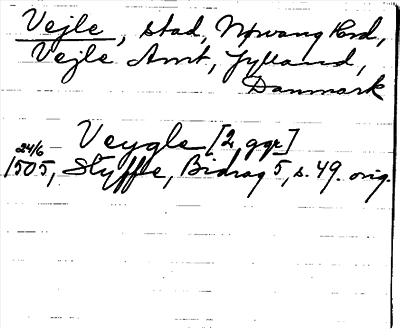 Vejle, stad, Nørvang hrd,
Vejle Amt, Jylland,
Danmark
Veygle [2 ggr]
24/6
1505, Styffe, Bidrag 5, s. 49. orig.